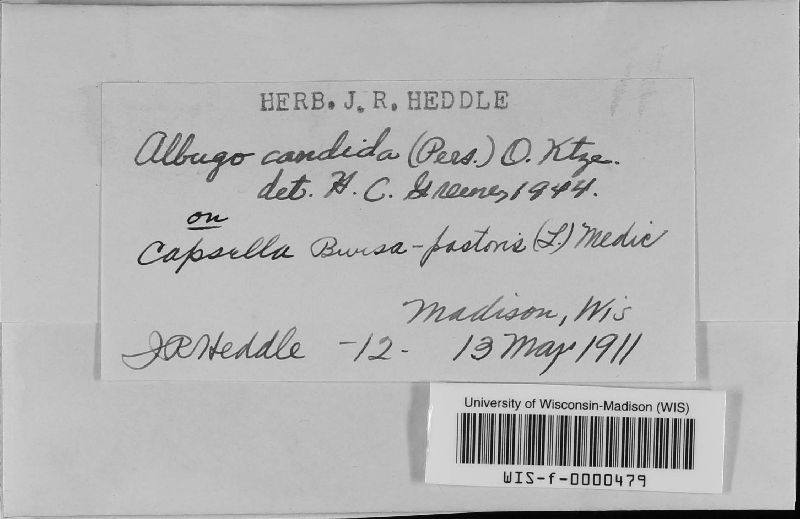 HERB. J. R. HEDDLE
Albugo candida (Pers.) O. Ktze.
det. H. C. Greene, 1944.
on
Capsella Bursa-pastoris (L.) Medic
Madison, Wis
J R Heddle -12- 13 May 1911
University of Wisconsin-Madison (WIS)
WIS-f-0000479